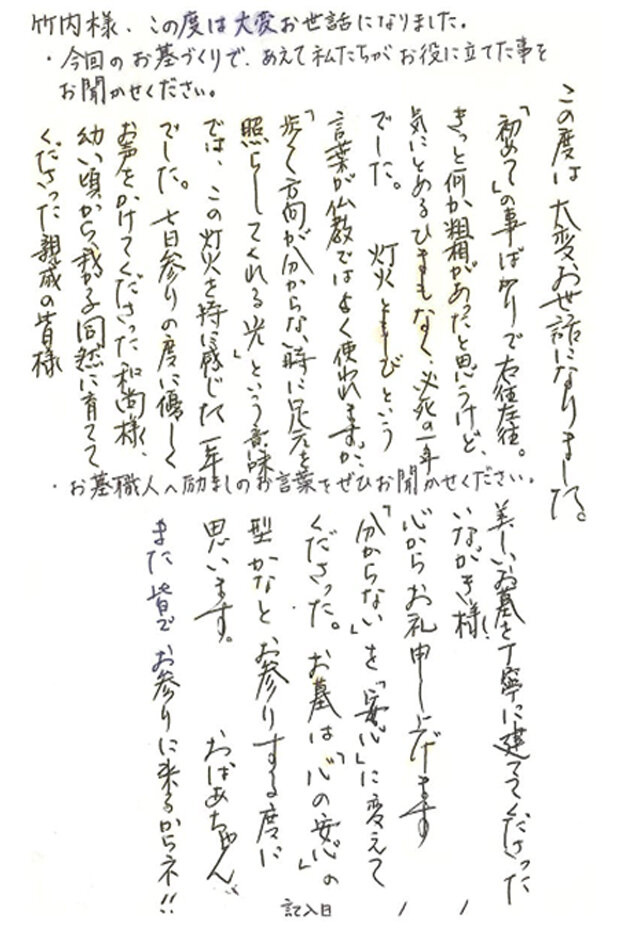 竹内様、この度は大変お世話になりました。
・今回のお墓づくりで、あえて私たちがお役に立てた事を
お聞かせください。
この度は大変お世話になりました。
「初めて」の事ばかりで右往左往。
きっと何か粗相があったと思うけど、
気にとめるひまもなく、必死の一年
でした。 灯火ともしびという
言葉が仏教ではよく使われますが、
「歩く方向が分からない時に足元を
照らしてくれる光」という意味
では、この灯火を特に感じた一年
でした。七日参りの度に優しく
お声をかけてくださった和尚様、
幼い頃から我が子同然に育てて
くださった親戚の皆様
・お墓職人へ励ましのお言葉をぜひお聞かせください。
美しいお墓を丁寧に建ててくださった
いながき様!
心からお礼申し上げます
「分からない」を「安心」に変えて
くださった。お墓は「心の安心」の
型かなとお参りする度に
思います。 おばあちゃん、
また皆でお参りに来るからネ!!
記入日 / /